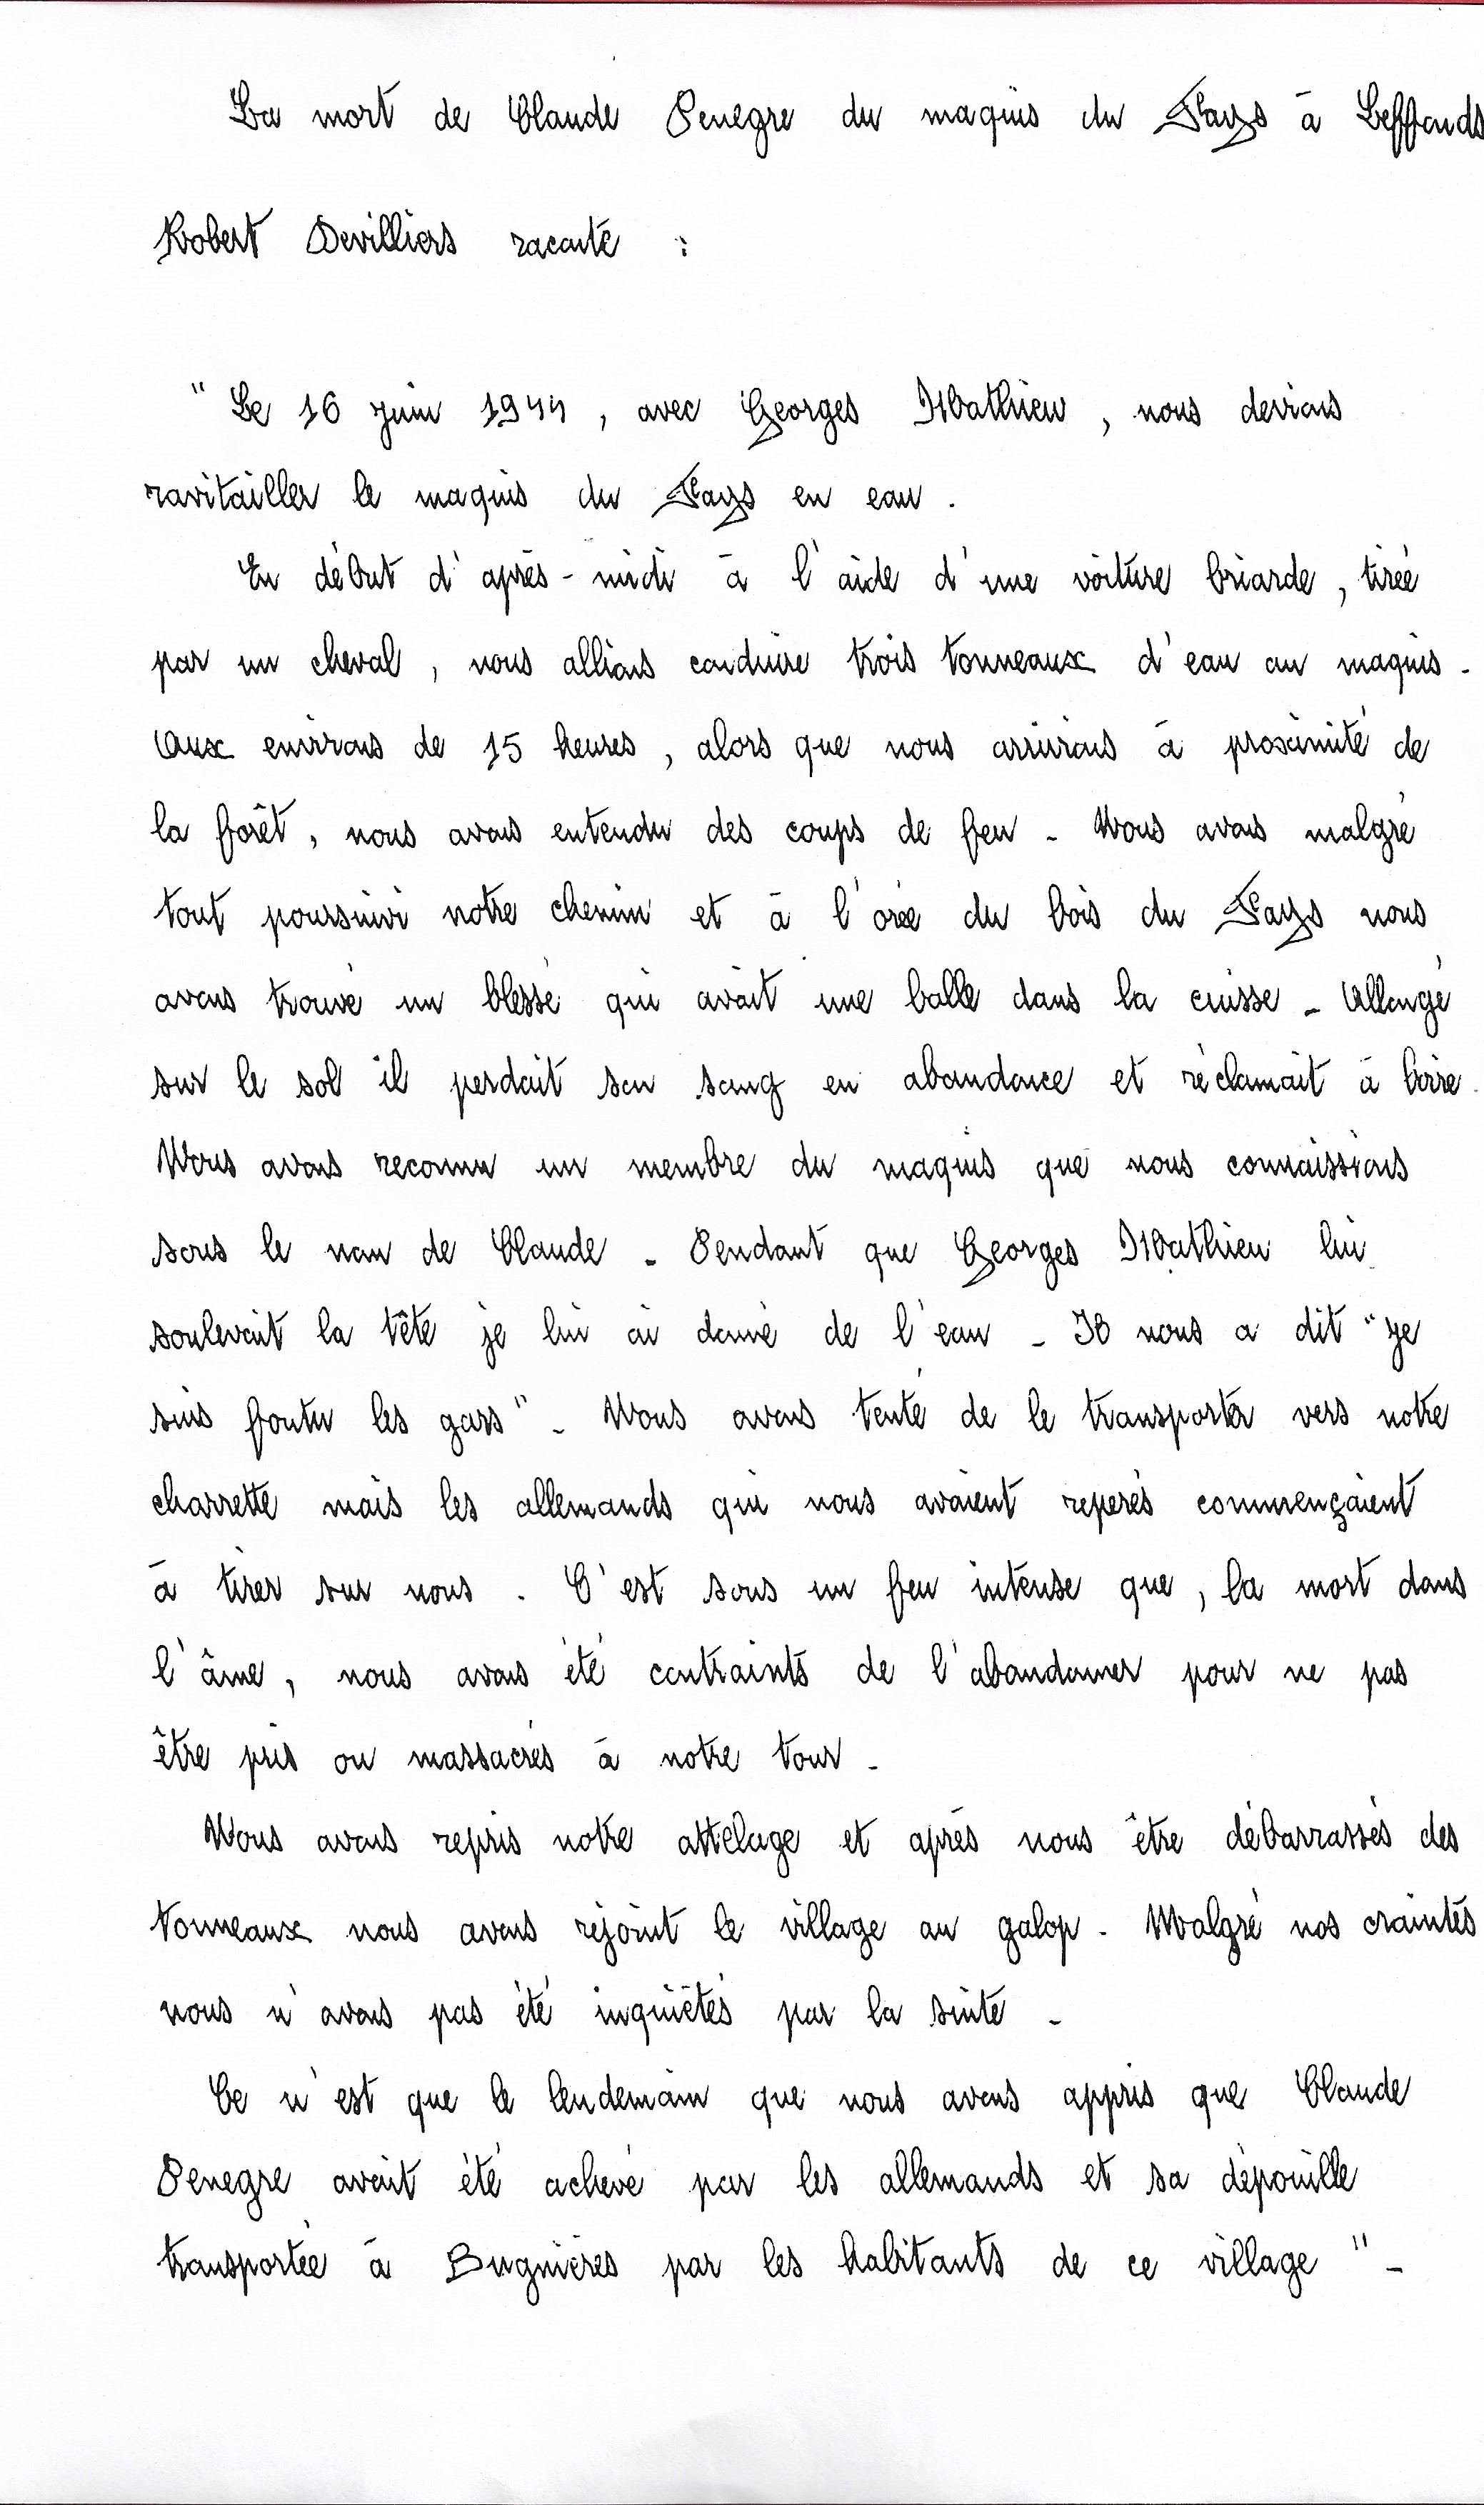 La mort de Claude Penegre du maquis du Fays à Leffonds
Robert Devilliers raconte :
" Le 16 juin 1944 , avec Georges Mathieu , nous devions
ravitailler le maquis du Fays en eau .
En début d'après - midi à l'aide d'une voiture briarde , tirée
par un cheval , nous allions conduire trois tonneaux d'eau au maquis .
Aux environs de 15 heures , alors que nous arrivions à proximité de
la forêt , nous avons entendu des coups de feu . Nous avons malgré
tout poursuivi notre chemin et à l'orée du bois du Fays nous
avons trouvé un blessé qui avait une balle dans la cuisse . Allongé
sur le sol il perdait son sang en abondance et réclamait à boire .
Nous avons reconnu un membre du maquis que nous connaissions
sous le nom de Claude . Pendant que Georges Mathieu lui
soulevait la tête je lui ai donné de l'eau . Il nous a dit " je
suis foutu les gars " . Nous avons tenté de le transporter vers notre
charrette mais les allemands qui nous avaient repérés commençaient
à tirer sur nous . C'est sous un feu intense que , la mort dans
l'âme , nous avons été contraints de l'abandonner pour ne pas
être pris ou massacrés à notre tour .
Nous avons repris notre attelage et après nous être débarrassés des
tonneaux nous avons rejoint le village au galop . Malgré nos craintes
nous n'avons pas été inquiétés par la suite .
Ce n'est que le lendemain que nous avons appris que Claude
Penegre avait été achevé par les allemands et sa dépouille
transportée à Bugnières par les habitants de ce village " .